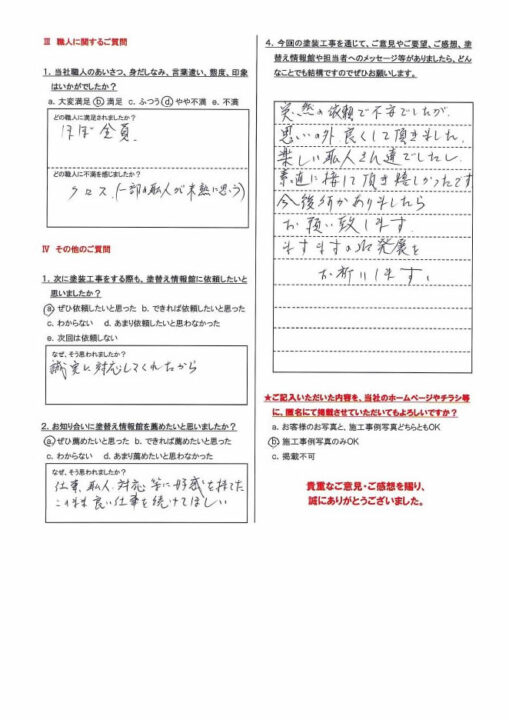 Ⅲ 職人に関するご質問
1. 当社職人のあいさつ、身だしなみ、言葉遣い、態度、印象
はいかがでしたか？
a. 大変満足 b. 満足 c. ふつう d. やや不満 e. 不満
どの職人に満足されましたか？
ほぼ全員
どの職人に不満を感じましたか？
クロス(一部の職人が未熟に思う)
Ⅳ その他のご質問
1. 次に塗装工事をする際も、塗替え情報館に依頼したいと
思いましたか？
a. ぜひ依頼したいと思った b. できれば依頼したいと思った
c. わからない d. あまり依頼したいと思わなかった
e. 次回は依頼しない
なぜ、そう思われましたか？
誠実に対応してくれたから
2. お知り合いに塗替え情報館を薦めたいと思いましたか？
a. ぜひ薦めたいと思った b. できれば薦めたいと思った
c. わからない d. あまり薦めたいと思わなかった
なぜ、そう思われましたか？
仕事、職人、対応等に好感を持てた
この様な良い仕事を続けてほしい
4. 今回の塗装工事を通じて、ご意見やご要望、ご感想、塗
替え情報館や担当者へのメッセージ等がありましたら、どん
なことでも結構ですのでぜひお願いします。
突然の依頼で不安でしたが、
思いの外良くして頂きました。
楽しい職人さん達でしたし
素直に接して頂き嬉しかったです
今後何かありましたら
お願い致します。
ますますの御発展を
お祈りします。
★ご記入いただいた内容を、当社のホームページやチラシ等
に、匿名にて掲載させていただいてもよろしいですか？
a. お客様のお写真と、施工事例写真どちらともOK
b. 施工事例写真のみOK
c. 掲載不可
貴重なご意見・ご感想を賜り、
誠にありがとうございました。